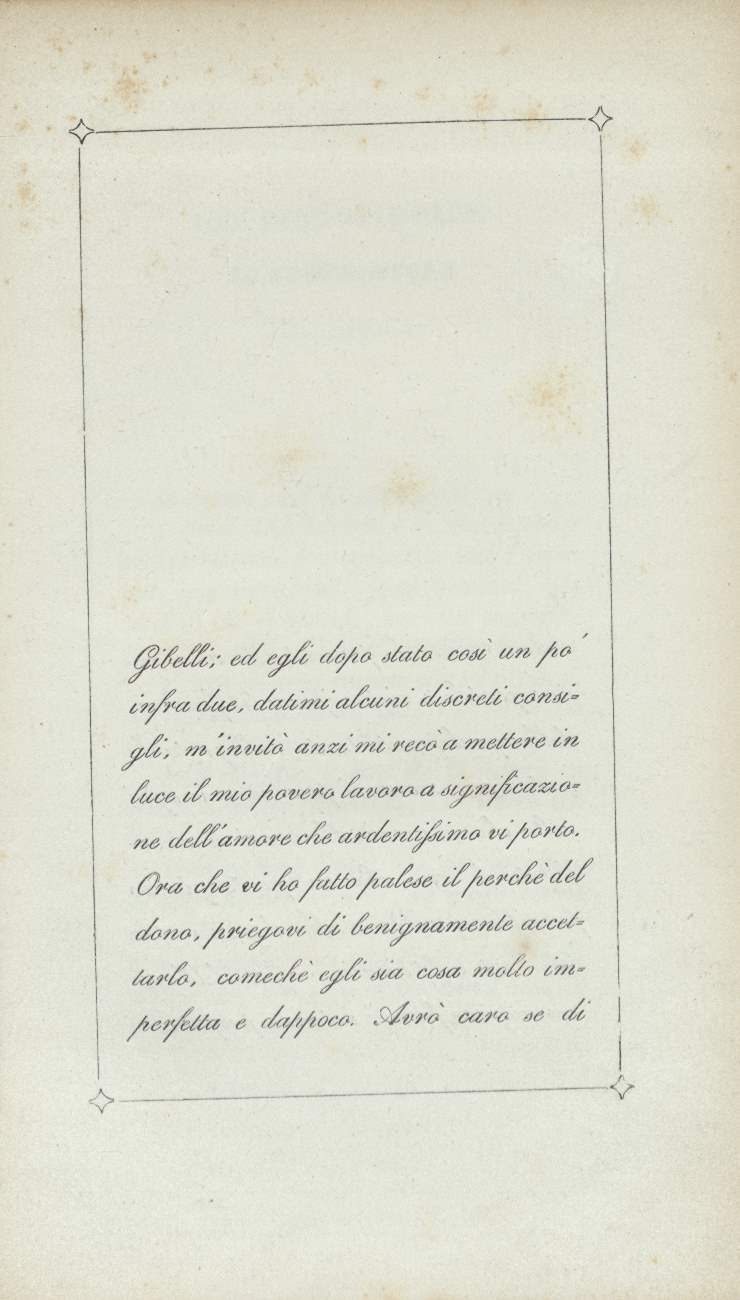 Gibelli; ed egli dopo stato così un po'
infra due, datimi alcuni discreti consi=
gli, m'invitò anzi mi recò a mettere in
luce il mio povero lavoro a significazio=
ne dell'amore che ardentiſsimo vi porto.
Ora che vi ho fatto palese il perchè del
dono, priegovi di benignamente accet=
tarlo, comechè egli sia cosa molto im=
perfetta e dappoco. Avrò caro se di